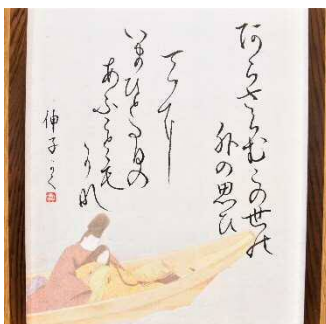 あらさらむこの世の
外の思ひ
てに
いまひとたひの
あふことも
か那
伸子かく